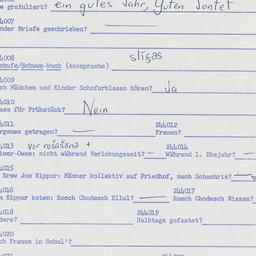 e gratuliert? ein gutes Jahr, Guten Jontef
4007
nder Briefe geschrieben?
4008 stiɣəs
chufe/Schuwe-Wuch (Aussprache)
4009
ch Mädchen und Kinder Schofarblasen hören? Ja
4010
use für Frühstück? Nein
4011 244012
rgenes getragen? — Frasen?
4013 vor 244014
iwer-Owes: nicht während Verlobungszeit? — Während 1. Ehejahr? —
4015
Erew Jom Kippur: Männer kollektiv auf Friedhof, nach Schachris?
4016 244017
m Kippur koten: Rosch Chodesch Ellul? — Rosch Chodesch Nissan?
4018 244019
dere? Halbtags gefastet?
4020
ch Frauen in Schul'?